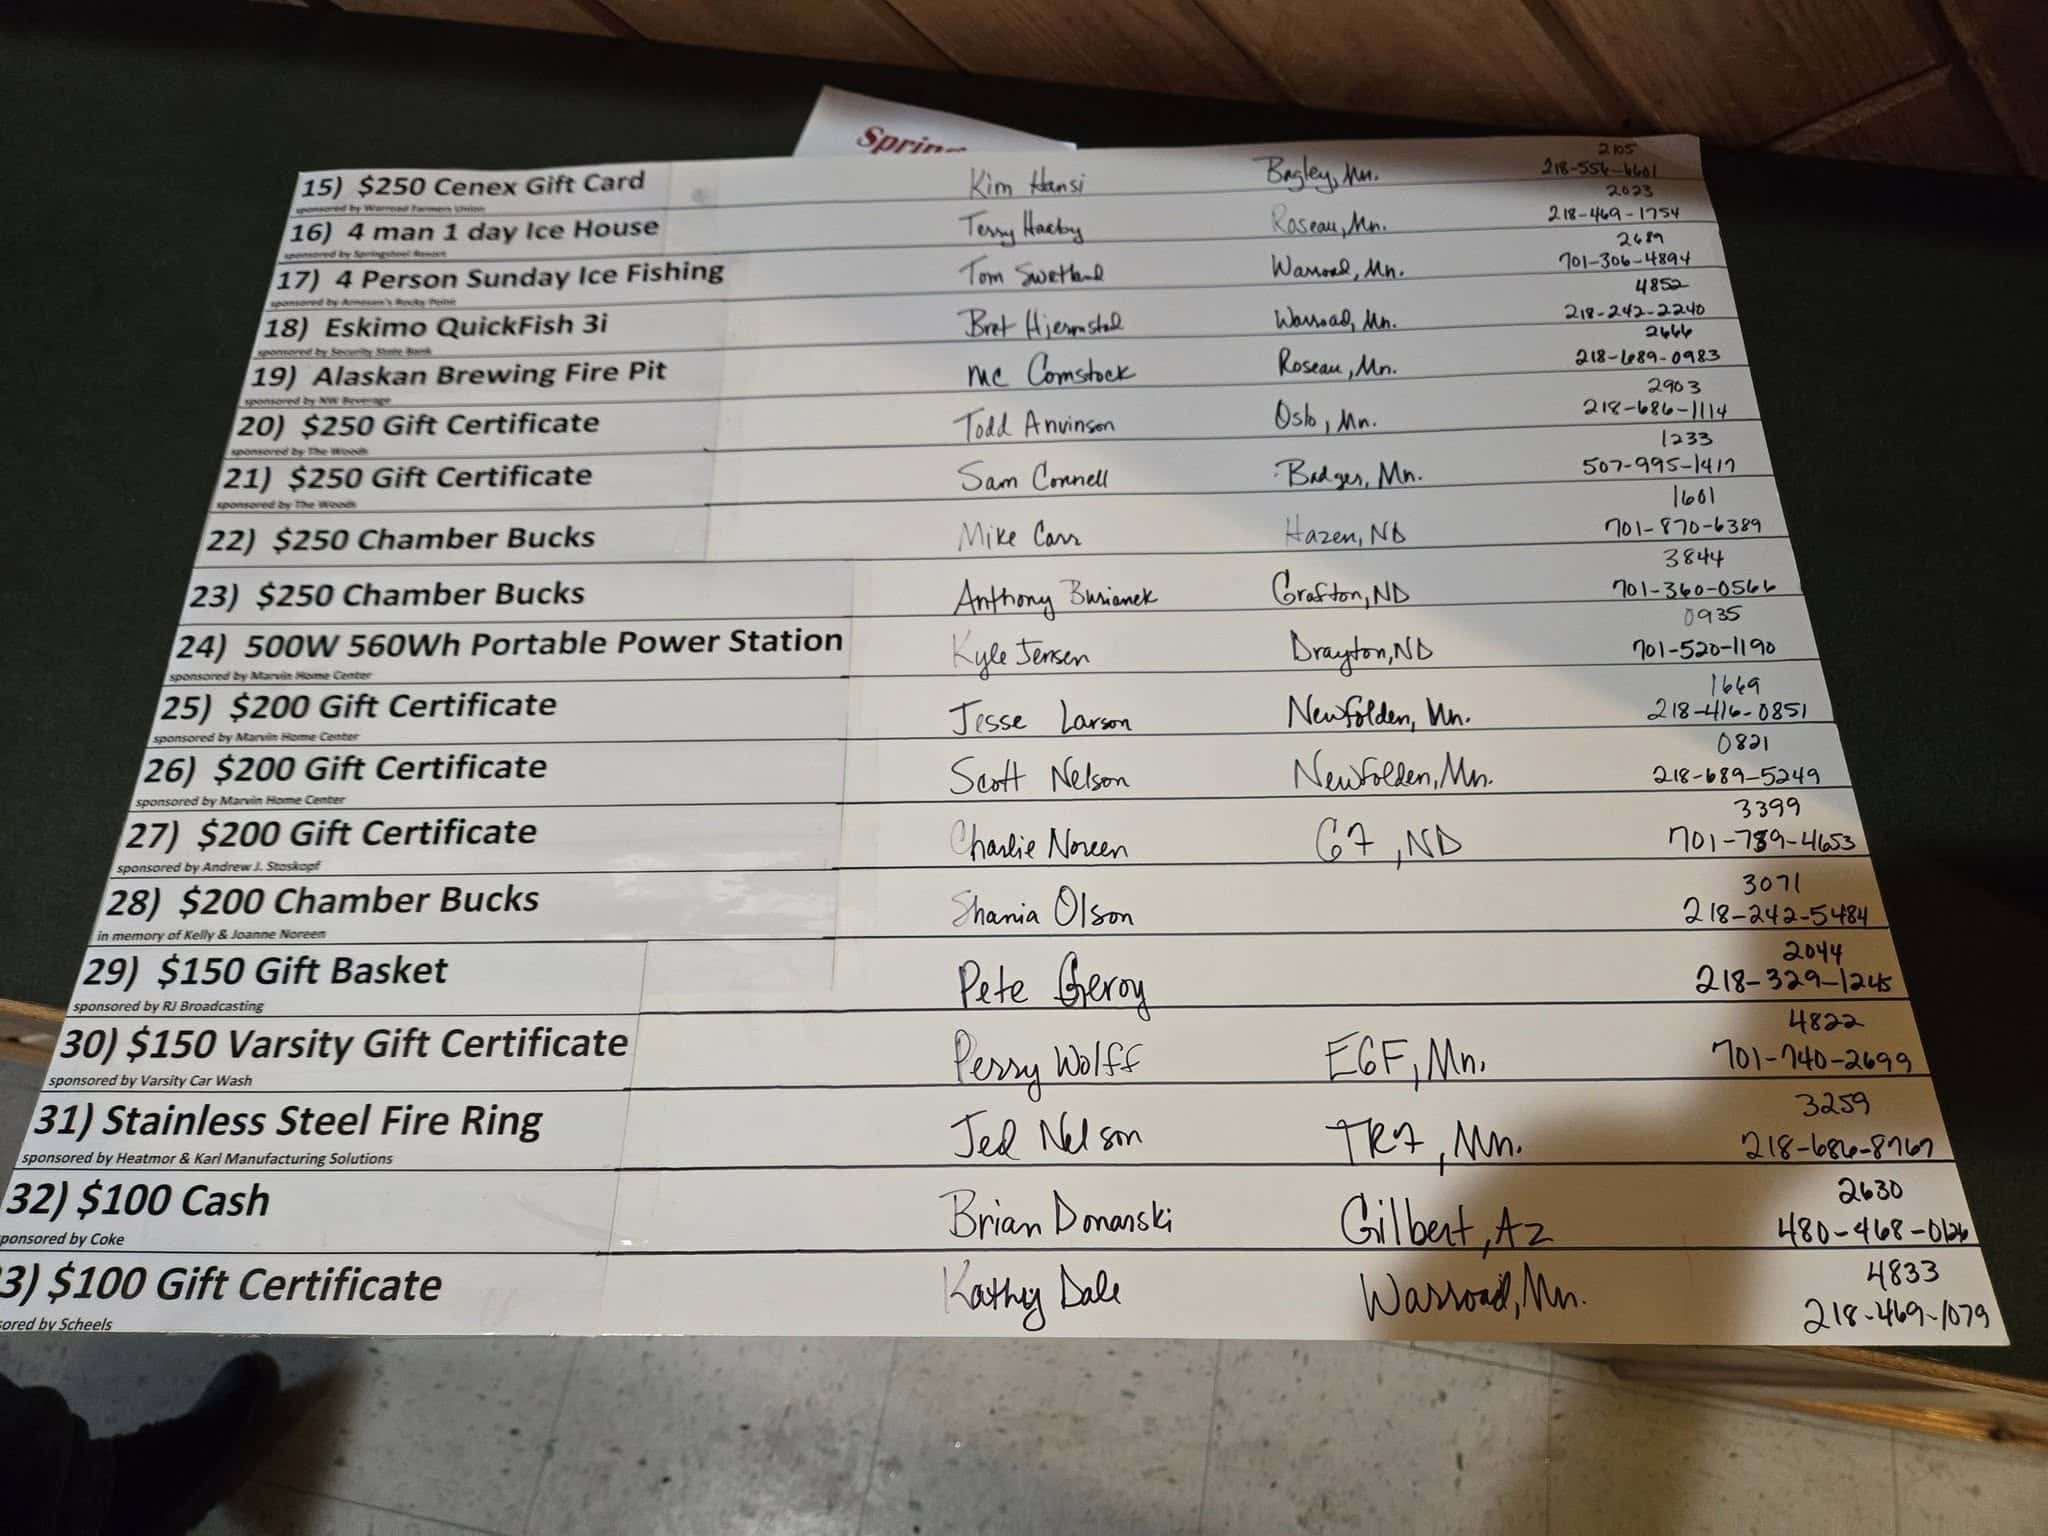 Spring
2105
15) $250 Cenex Gift Card Kim Hansi Bagley, Mn. 218-556-6601
sponsored by Warroad Farmers Union
2023
16) 4 man 1 day Ice House Terry Haeby Roseau, Mn. 218-469-1754
sponsored by Springsteel Resort
2689
17) 4 Person Sunday Ice Fishing Tom Swetland Warroad, Mn. 701-306-4894
sponsored by Arnesen's Rocky Point
4852
18) Eskimo QuickFish 3i Bret Hjermstad Warroad, Mn. 218-242-2240
sponsored by Security State Bank
2666
19) Alaskan Brewing Fire Pit MC Comstock Roseau, Mn. 218-689-0983
sponsored by NW Beverage
2903
20) $250 Gift Certificate Todd Anvinson Oslo, Mn. 218-686-1114
sponsored by The Woods
1233
21) $250 Gift Certificate Sam Connell Badger, Mn. 507-995-1417
sponsored by The Woods
1601
22) $250 Chamber Bucks Mike Carr Hazen, ND 701-870-6389
3844
23) $250 Chamber Bucks Anthony Busianek Grafton, ND 701-360-0566
0935
24) 500W 560Wh Portable Power Station Kyle Jensen Drayton, ND 701-520-1190
sponsored by Marvin Home Center
1669
25) $200 Gift Certificate Jesse Larson Newfolden, Mn. 218-416-0851
sponsored by Marvin Home Center
0821
26) $200 Gift Certificate Scott Nelson Newfolden, Mn. 218-689-5249
sponsored by Marvin Home Center
3399
27) $200 Gift Certificate Charlie Noreen GF, ND 701-789-4653
sponsored by Andrew J. Stoskopf
3071
28) $200 Chamber Bucks Shania Olson 218-242-5484
in memory of Kelly & Joanne Noreen
2044
29) $150 Gift Basket Pete Geroy 218-329-1245
sponsored by RJ Broadcasting
4822
30) $150 Varsity Gift Certificate Perry Wolff EGF, Mn. 701-740-2699
sponsored by Varsity Car Wash
3259
31) Stainless Steel Fire Ring Jed Nelson TRF, Mn. 218-686-8767
sponsored by Heatmor & Karl Manufacturing Solutions
2630
32) $100 Cash Brian Donarski Gilbert, Az 480-468-0126
ponsored by Coke
4833
3) $100 Gift Certificate Kathy Dale Warroad, Mn. 218-469-1079
sored by Scheels